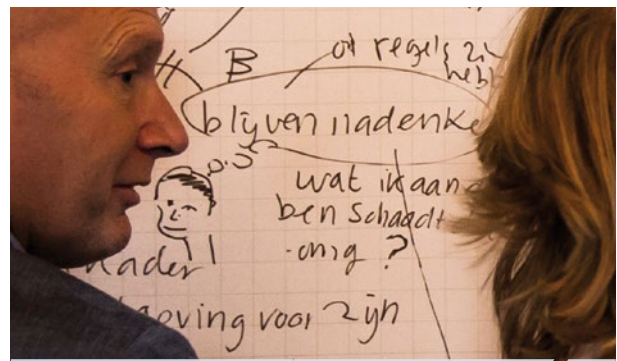 B of regels zi
hebb
blijven nadenke
wat ik aan
ben schaadt
omg ?
kader
geving voor zijn